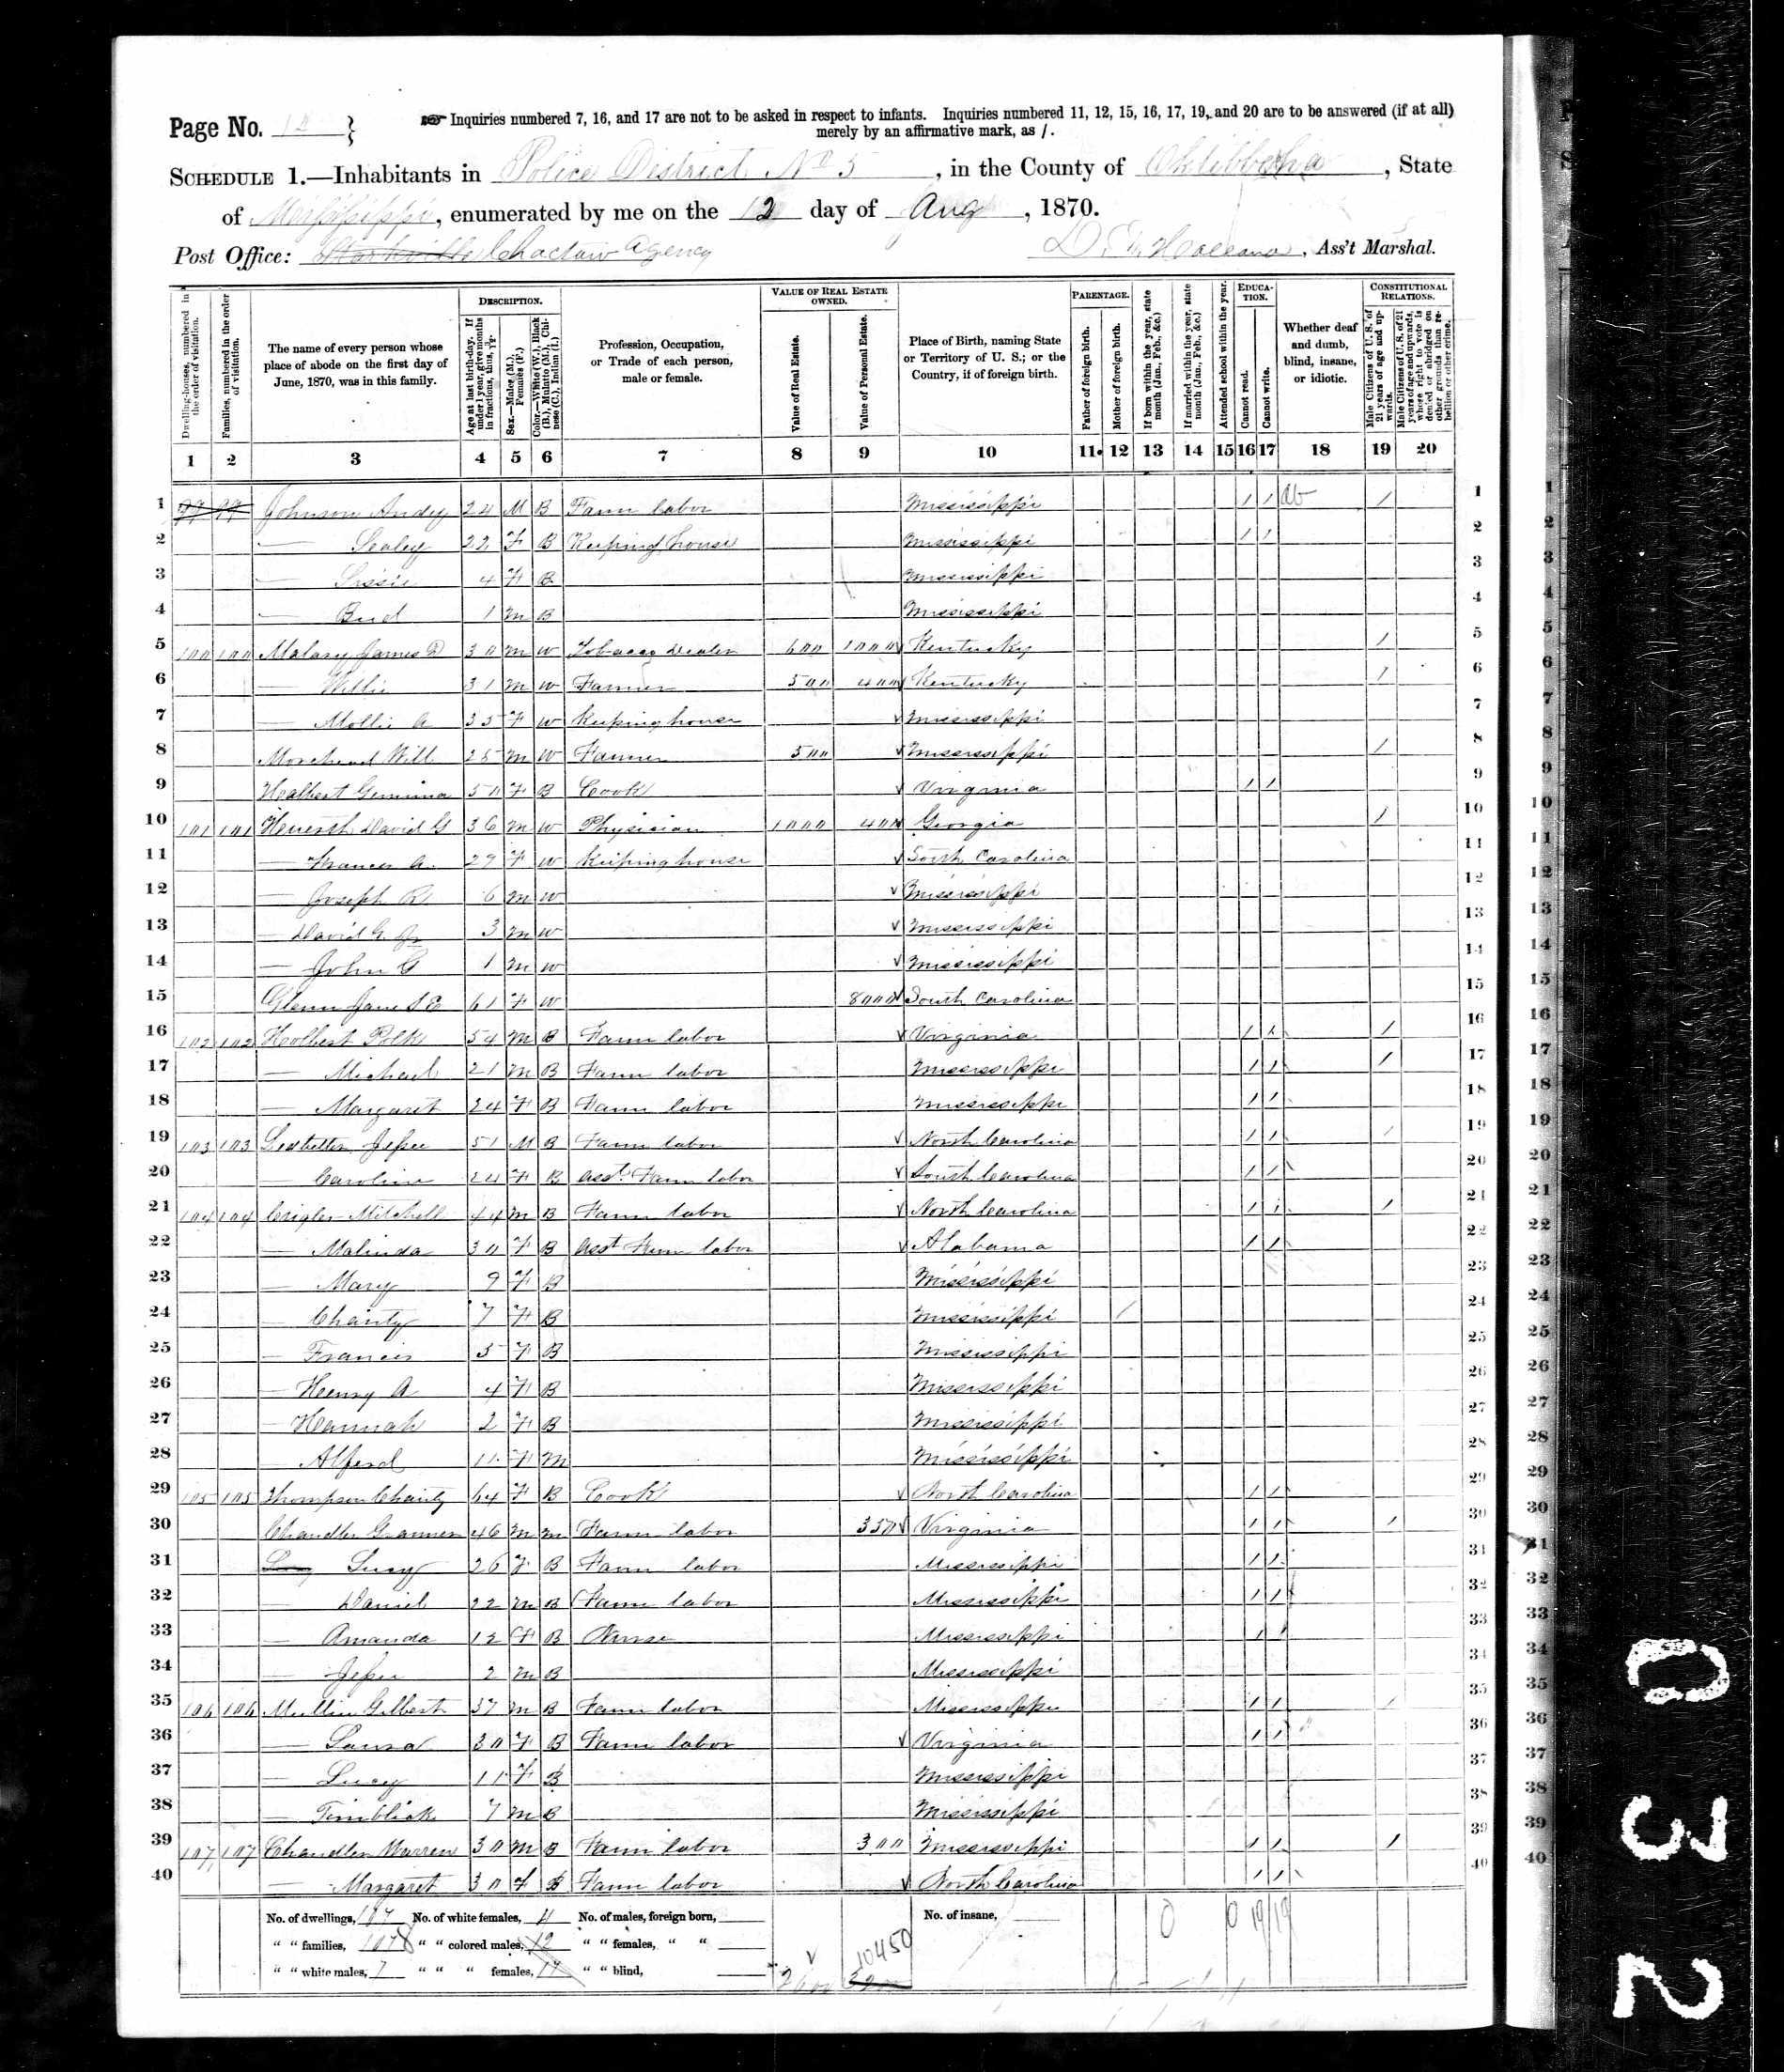 Page No. 12 } Inquiries numbered 7, 16, and 17 are not to be asked in respect to infants. Inquiries numbered 11, 12, 15, 16, 17, 19, and 20 are to be answered (if at all)
merely by an affirmative mark, as /.
SCHEDULE 1.—Inhabitants in Police District No 5, in the County of Oktibbeha, State
of Mississippi, enumerated by me on the 12 day of Aug, 1870.
Post Office: Starkville Choctaw Agency Ass't Marshal.
Dwelling-houses, numbered in the order of visitation.
Families, numbered in the order of visitation.
The name of every person whose place of abode on the first day of June, 1870, was in this family.
DESCRIPTION.
Age at last birth-day. If under 1 year, give months in fractions, thus, 3/12.
Sex.—Males (M.), Females (F.)
Color.—White (W.), Black (B.), Mulatto (M.), Chinese (C.), Indian (I.)
Profession, Occupation, or Trade of each person, male or female.
VALUE OF REAL ESTATE OWNED.
Value of Real Estate.
Value of Personal Estate.
Place of Birth, naming State or Territory of U. S.; or the Country, if of foreign birth.
PARENTAGE.
Father of foreign birth.
Mother of foreign birth.
If born within the year, state month (Jan., Feb., &c.)
If married within the year, state month (Jan., Feb., &c.)
Attended school within the year.
EDUCATION.
Cannot read.
Cannot write.
Whether deaf and dumb, blind, insane, or idiotic.
CONSTITUTIONAL RELATIONS.
Male Citizens of U. S. of 21 years of age and upwards.
Male Citizens of U. S. of 21 years of age and upwards, whose right to vote is denied or abridged on other grounds than rebellion or other crime.
1 2 3 4 5 6 7 8 9 10 11 12 13 14 15 16 17 18 19 20
1 99 99 Johnson Andy 24 M B Farm labor Mississippi / / / 1
2 — Sealey 22 F B Keeping house Mississippi / / 2
3 — Sissie 4 F B Mississippi 3
4 — Bud 1 M B Mississippi 4
5 100 100 Malary James D 30 M W Tobacco Dealer 600 1000 Kentucky / 5
6 — Willie 31 M W Farmer 500 400 Kentucky / 6
7 — Mollie A 35 F W Keeping house Mississippi 7
8 Morehead Will 25 M W Farmer 500 Mississippi / 8
9 Halbert Gemima 50 F B Cook Virginia / / 9
10 101 101 David G 36 M W Physician 1000 400 Georgia / 10
11 — Frances A. 29 F W Keeping house South Carolina 11
12 — Joseph R 6 M W Mississippi 12
13 — David G. Jr 3 M W Mississippi 13
14 — John G 1 M W Mississippi 14
15 Glenn Jane S E 61 F W 8000 South Carolina 15
16 102 102 Holbert Polk 54 M B Farm labor Virginia / / / 16
17 — Michael 21 M B Farm labor Mississippi / / / 17
18 — Margaret 24 F B Farm labor Mississippi / / 18
19 103 103 Ledbetter Jesse 51 M B Farm labor North Carolina / / / 19
20 — Caroline 24 F B asst. Farm labor South Carolina / / 20
21 104 104 Crigler Mitchell 44 M B Farm labor North Carolina / / / 21
22 — Malinda 30 F B asst Farm labor Alabama / / 22
23 — Mary 9 F B Mississippi 23
24 — Charity 7 F B Mississippi / 24
25 — Francis 5 F B Mississippi 25
26 — Henry A 4 F B Mississippi 26
27 — Hannah 2 F B Mississippi 27
28 — Alferd 11 F M Mississippi 28
29 105 105 Thompson Charity 64 F B Cook North Carolina / / 29
30 Chandler 46 M M Farm labor 350 Virginia / / / 30
31 Lucy 26 F B Farm labor Mississippi / / 31
32 — Daniel 22 M B Farm labor Mississippi / / 32
33 — Amanda 12 F B Nurse Mississippi / / 33
34 — Jesse 2 M B Mississippi 34
35 106 106 Mullin Gilbert 37 M B Farm labor Mississippi / / / 35
36 — Laura 30 F B Farm labor Virginia / / 36
37 — Lucy 11 F B Mississippi 37
38 — Timblick 7 M B Mississippi 38
39 107 107 Chandler Warren 30 M B Farm labor 300 Mississippi / / / 39
40 — Margaret 30 F B Farm labor North Carolina / / 40
No. of dwellings, 107 No. of white females, 4 No. of males, foreign born, No. of insane, 0 0 19 19
" " families, 107 " " colored males, 12 " " females, " " 10450
" " white males, 7 " " " females, 17 " " blind, 2600
0 3 2